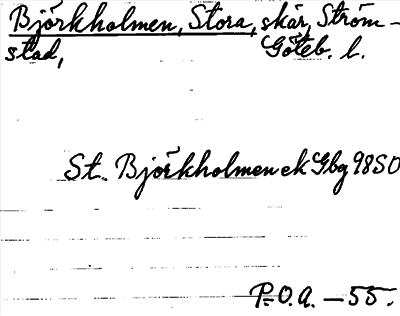 Björkholmen, Stora, skär, Ström-
stad, Göteb. l.
St. Björkholmen ek Gbg 98 SO
P.O.A. - 55.